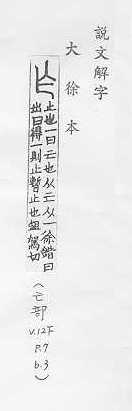 說文解字
大徐本
止也一曰亡也从亡从一徐鍇曰
出亡得一則止暫止也鉏駕切
(亡部
V.12下
P.7
b.3)